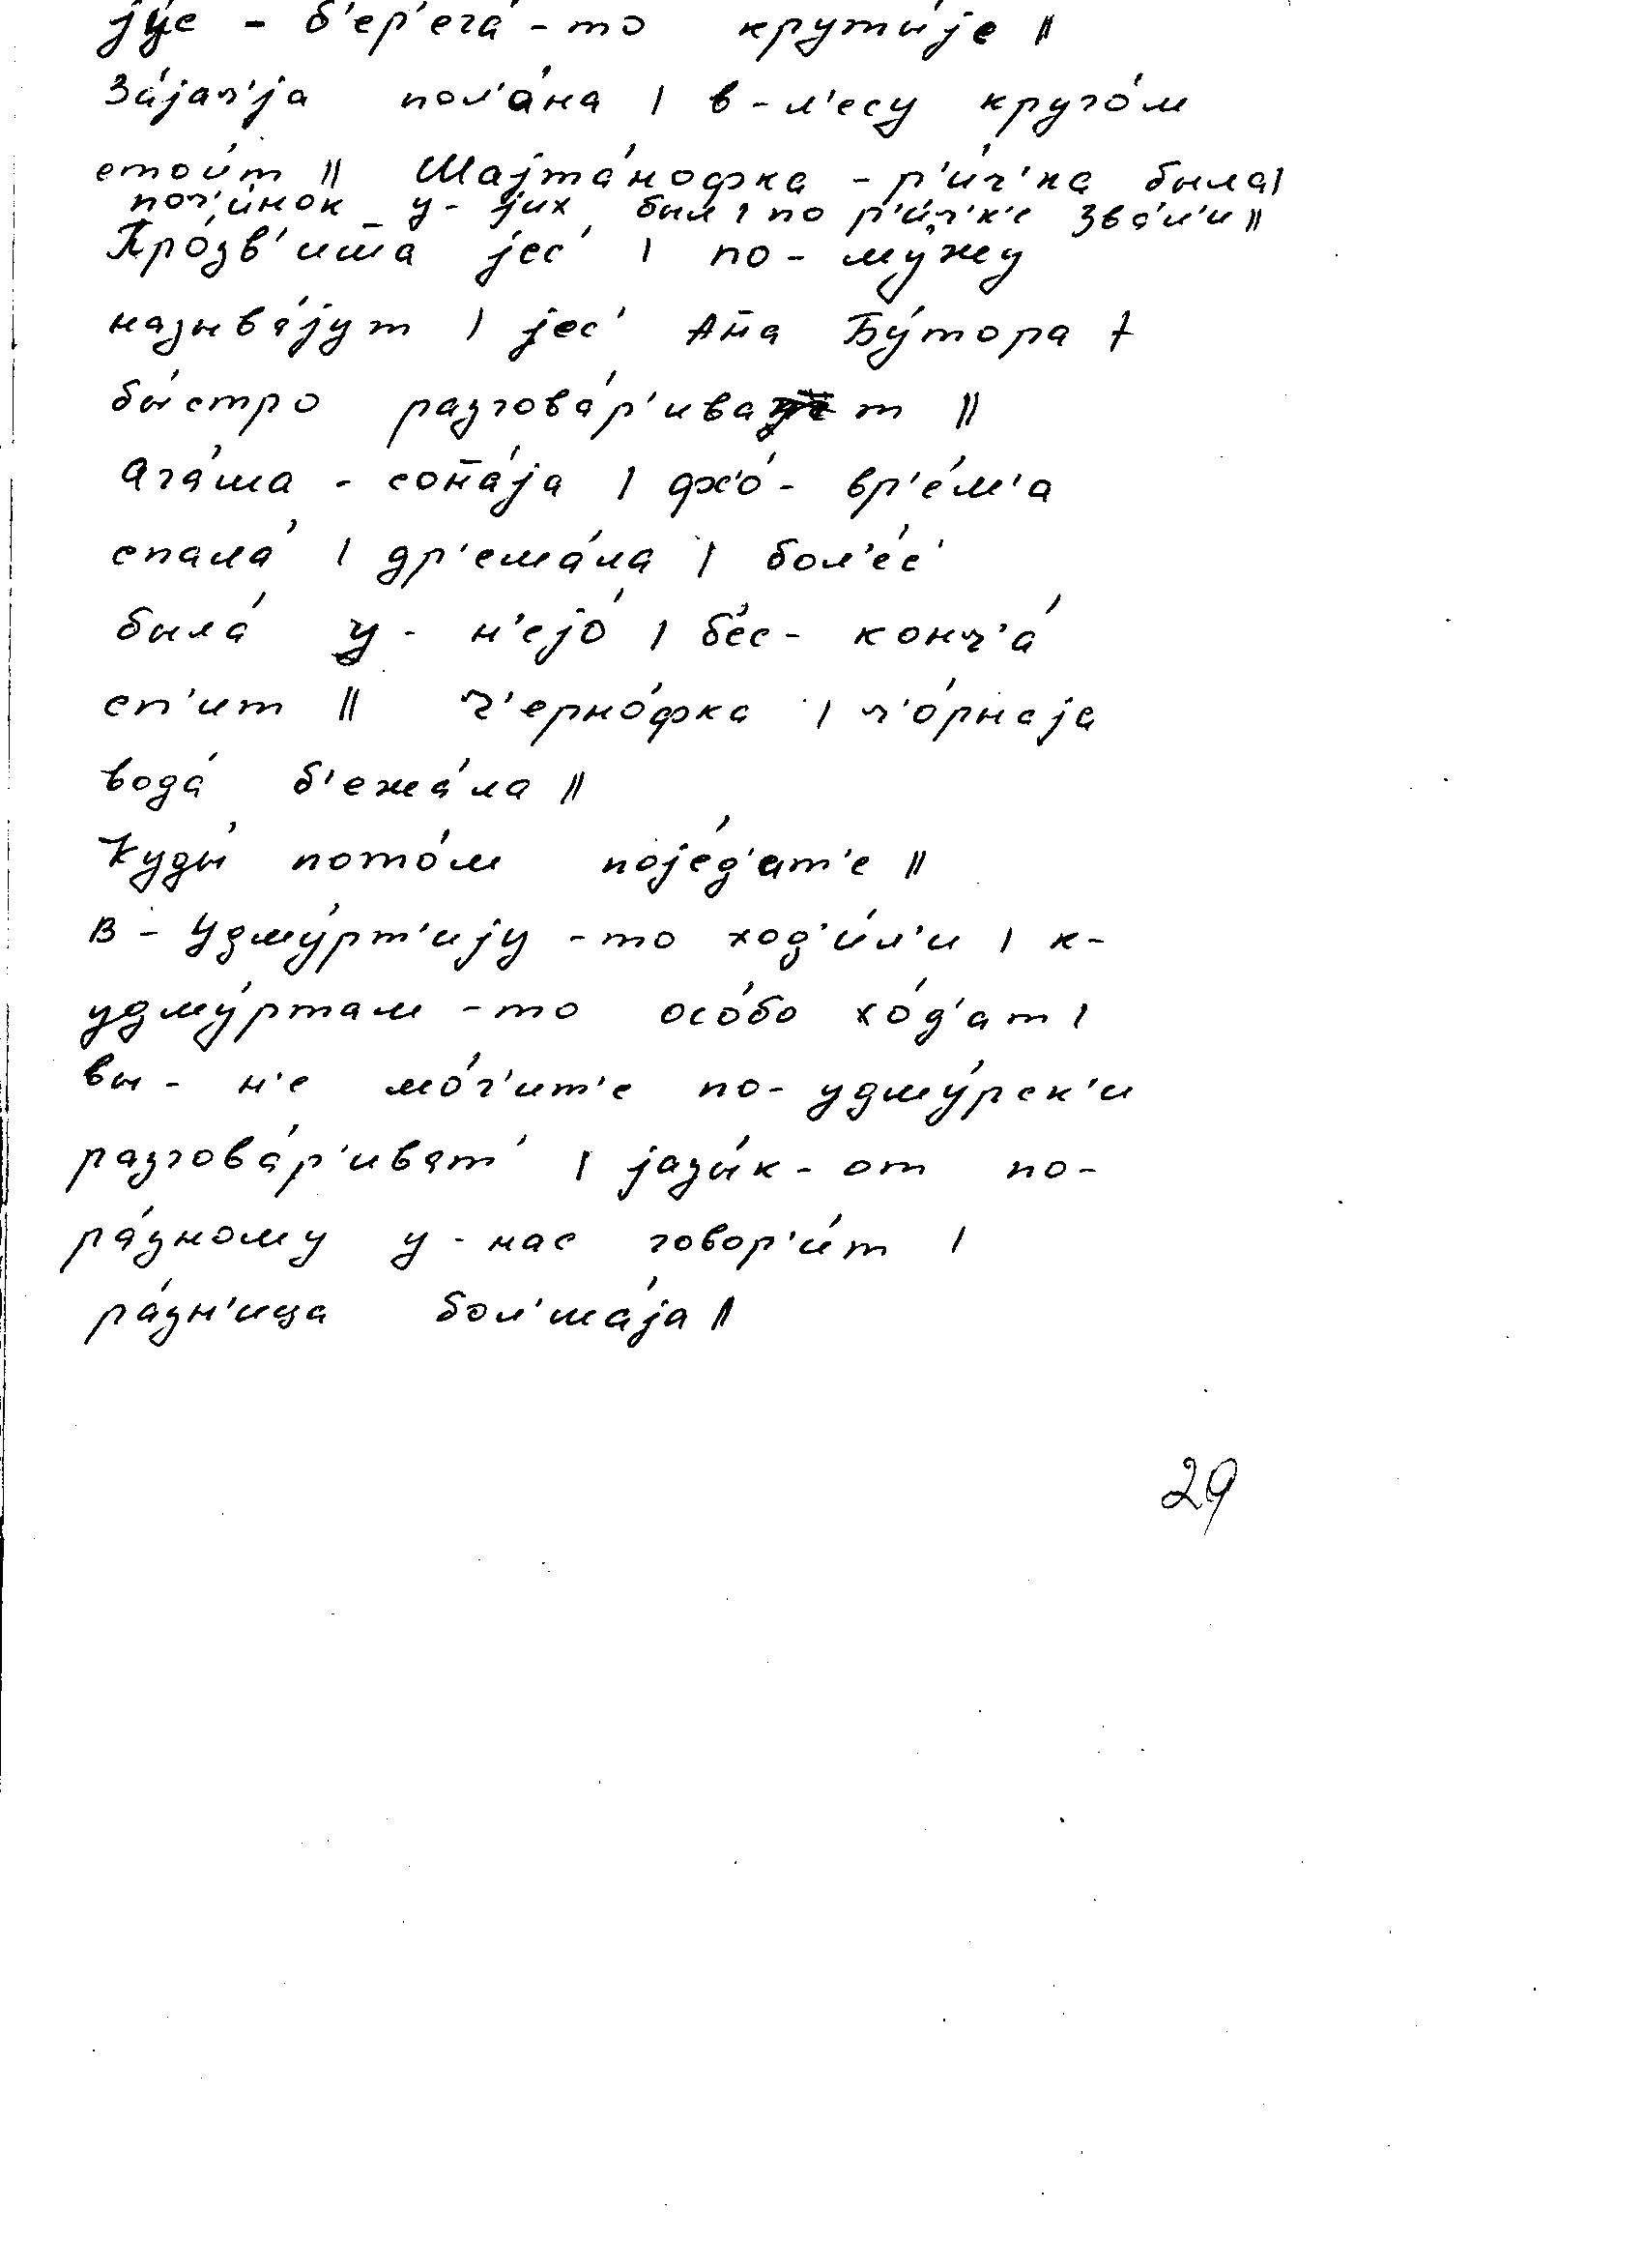 jу́с - б'ер'ега́ - то крути́jе ||
За́jач'jа пол'а́на | в - л'есу круго́м
стои́т || Шаjта́нофка - р'и́ч'ка была |
поч'и́нок у - jих был | по р'и́ч'к'е зва́л'и ||
Про́зв'иш̄а jес' | по - му́жу
называ́jут | jес' Ан̄а Бу́тора †
бы́стро разгова́р'ива т ||
Ага́ша - сон̄а́jа | фс'о́ - вр'е́м'а
спала́ | др'ема́ла | бол'е́с'
была́ у - н'еjо́ | бе́с - конч'а́
сп'ит || Ч'ерно́фка | ч'о́рнаjа
вода́ б'ежа́ла ||
Куды́ пото́м поjе́д'ат'е ||
В - Удму́рт'иjу - то ход'и́л'и | к -
удму́ртам - то осо́бо хо́д'ат |
вы - н'е мо́г'ит'е по - удму́рск'и
разгова́р'иват' | jазы́к - от по -
ра́зному у - нас говор'и́т |
ра́зн'ица бол'ша́jа ||
29